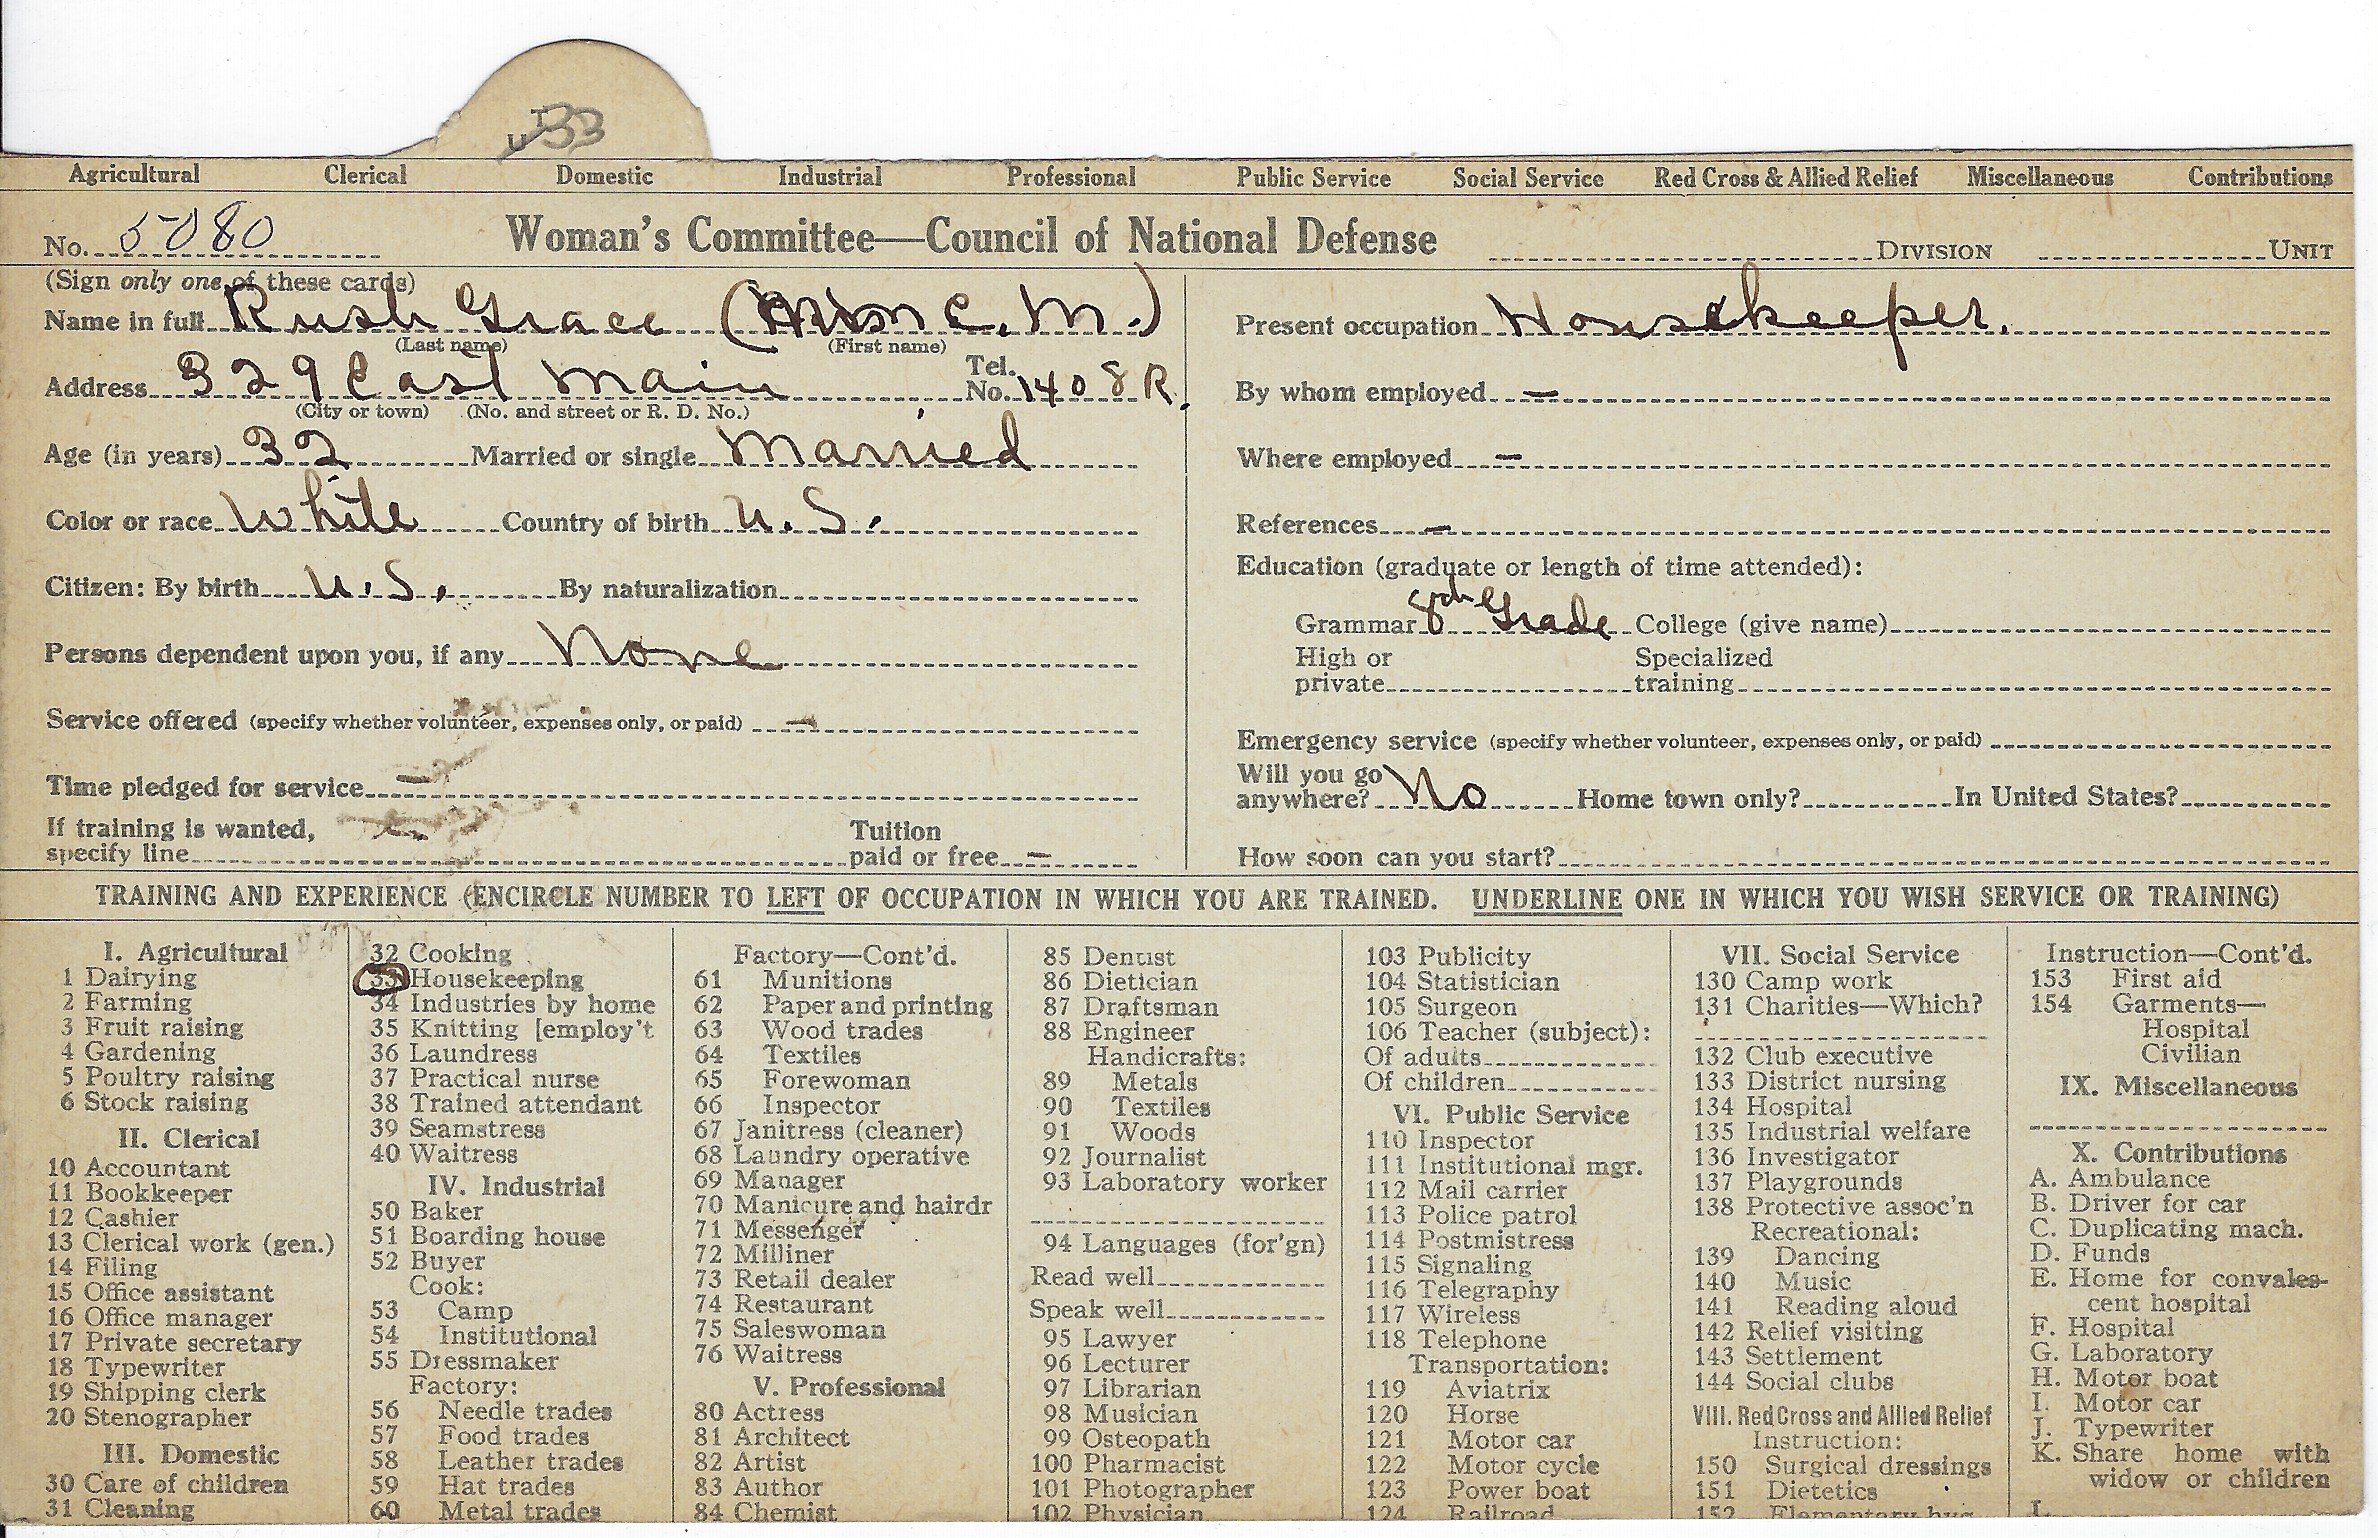 33
Agricultural Clerical Domestic Industrial Professional Public Service Social Service Red Cross & Allied Relief Miscellaneous Contributions
No. 5080 Woman's Committee—Council of National Defense DIVISION UNIT
(Sign only one of these cards)
Name in full Rush Grace (Mrs C. M.)
(Last name) (First name)
Address 329 East Main Tel. No. 1408R.
(City or town) (No. and street or R. D. No.)
Age (in years) 32 Married or single Married
Color or race White Country of birth U.S.
Citizen: By birth U.S. By naturalization
Persons dependent upon you, if any None
Service offered (specify whether volunteer, expenses only, or paid) —
Time pledged for service —
If training is wanted, specify line — Tuition paid or free —
Present occupation Housekeeper.
By whom employed —
Where employed —
References —
Education (graduate or length of time attended):
Grammar 8th Grade College (give name)
High or private Specialized training
Emergency service (specify whether volunteer, expenses only, or paid)
Will you go anywhere? No Home town only? In United States?
How soon can you start?
TRAINING AND EXPERIENCE (ENCIRCLE NUMBER TO LEFT OF OCCUPATION IN WHICH YOU ARE TRAINED. UNDERLINE ONE IN WHICH YOU WISH SERVICE OR TRAINING)
I. Agricultural
1 Dairying
2 Farming
3 Fruit raising
4 Gardening
5 Poultry raising
6 Stock raising
II. Clerical
10 Accountant
11 Bookkeeper
12 Cashier
13 Clerical work (gen.)
14 Filing
15 Office assistant
16 Office manager
17 Private secretary
18 Typewriter
19 Shipping clerk
20 Stenographer
III. Domestic
30 Care of children
31 Cleaning
32 Cooking
33 Housekeeping
34 Industries by home
35 Knitting [employ't
36 Laundress
37 Practical nurse
38 Trained attendant
39 Seamstress
40 Waitress
IV. Industrial
50 Baker
51 Boarding house
52 Buyer
Cook:
53 Camp
54 Institutional
55 Dressmaker
Factory:
56 Needle trades
57 Food trades
58 Leather trades
59 Hat trades
60 Metal trades
Factory—Cont'd.
61 Munitions
62 Paper and printing
63 Wood trades
64 Textiles
65 Forewoman
66 Inspector
67 Janitress (cleaner)
68 Laundry operative
69 Manager
70 Manicure and hairdr
71 Messenger
72 Milliner
73 Retail dealer
74 Restaurant
75 Saleswoman
76 Waitress
V. Professional
80 Actress
81 Architect
82 Artist
83 Author
84 Chemist
85 Dentist
86 Dietician
87 Draftsman
88 Engineer
Handicrafts:
89 Metals
90 Textiles
91 Woods
92 Journalist
93 Laboratory worker
94 Languages (for'gn)
Read well
Speak well
95 Lawyer
96 Lecturer
97 Librarian
98 Musician
99 Osteopath
100 Pharmacist
101 Photographer
102 Physician
103 Publicity
104 Statistician
105 Surgeon
106 Teacher (subject):
Of adults
Of children
VI. Public Service
110 Inspector
111 Institutional mgr.
112 Mail carrier
113 Police patrol
114 Postmistress
115 Signaling
116 Telegraphy
117 Wireless
118 Telephone
Transportation:
119 Aviatrix
120 Horse
121 Motor car
122 Motor cycle
123 Power boat
124 Railroad
VII. Social Service
130 Camp work
131 Charities—Which?
132 Club executive
133 District nursing
134 Hospital
135 Industrial welfare
136 Investigator
137 Playgrounds
138 Protective assoc'n
Recreational:
139 Dancing
140 Music
141 Reading aloud
142 Relief visiting
143 Settlement
144 Social clubs
VIII. Red Cross and Allied Relief
Instruction:
150 Surgical dressings
151 Dietetics
152 Elementary hyg.
Instruction—Cont'd.
153 First aid
154 Garments—
Hospital
Civilian
IX. Miscellaneous
X. Contributions
A. Ambulance
B. Driver for car
C. Duplicating mach.
D. Funds
E. Home for convales-
cent hospital
F. Hospital
G. Laboratory
H. Motor boat
I. Motor car
J. Typewriter
K. Share home with
widow or children
L.